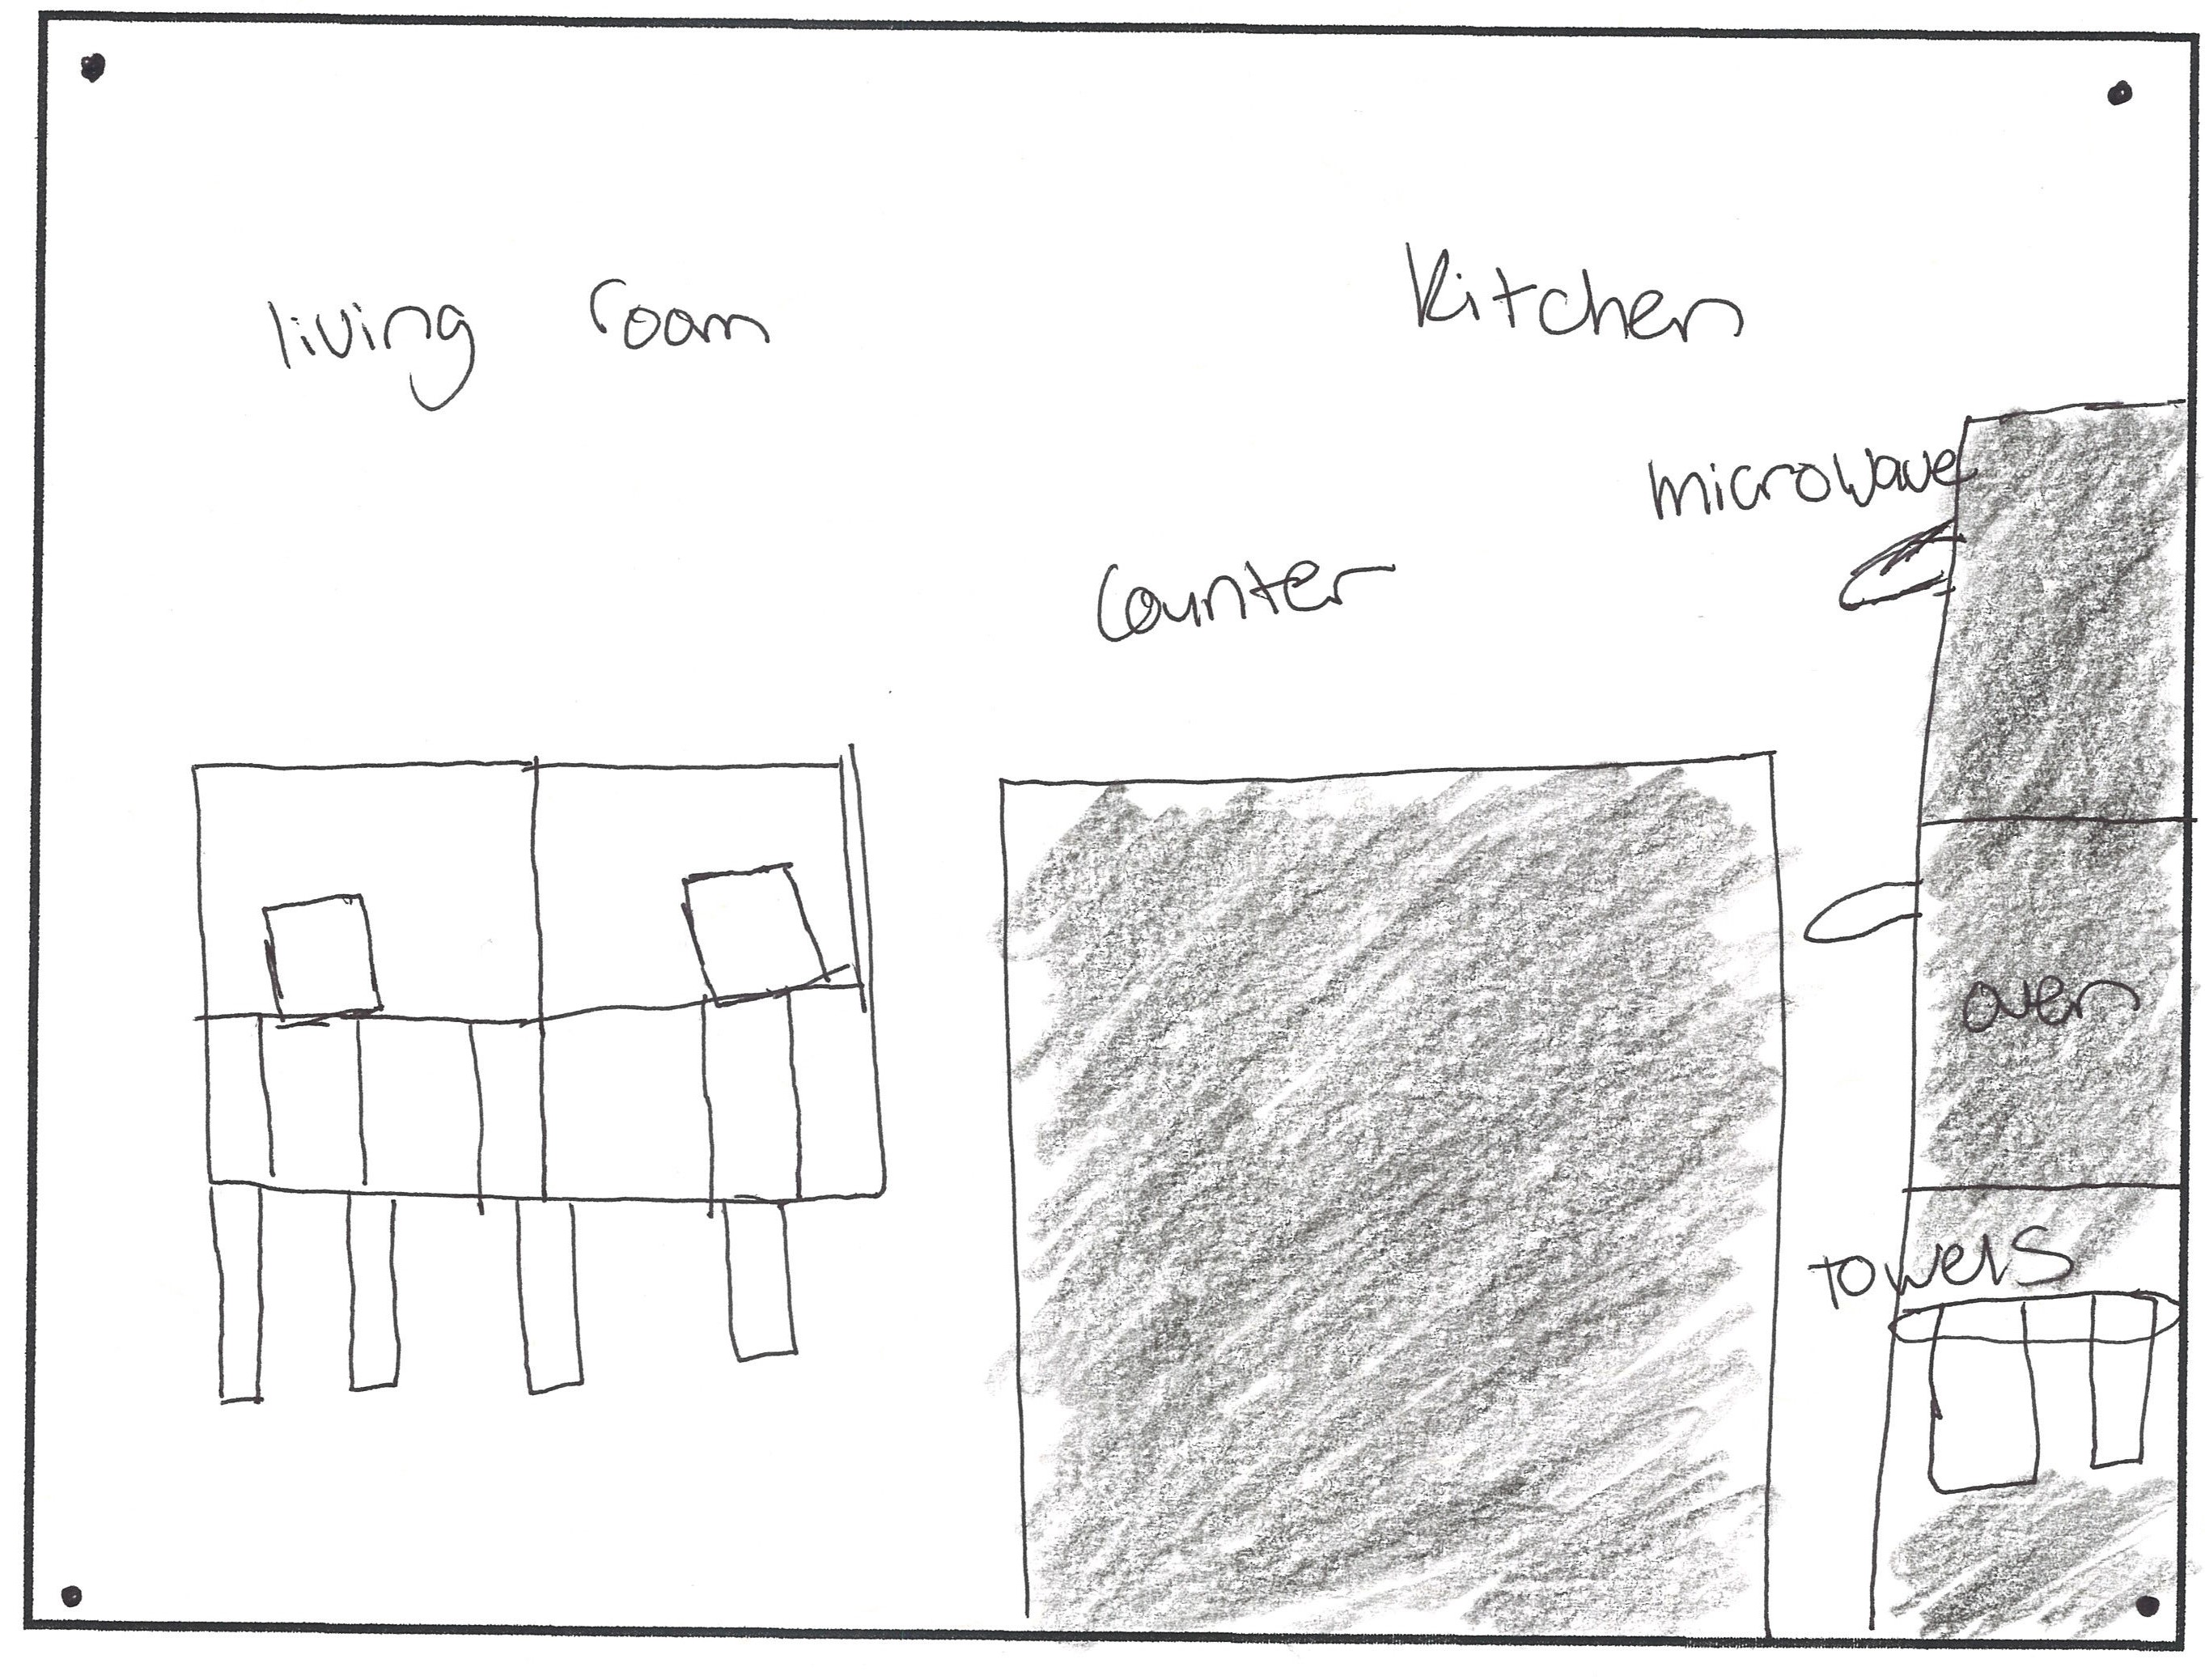 living room
Kitchen
microwave
Counter
oven
towels